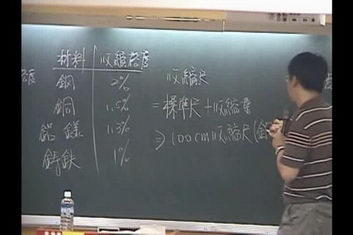 材料 收縮裕度
鋼 2%
銅 1.5%
鋁 鎂 1.3%
鑄鐵 1%
收縮尺
=標準尺+收縮量
⇒100cm收縮尺(
裕度